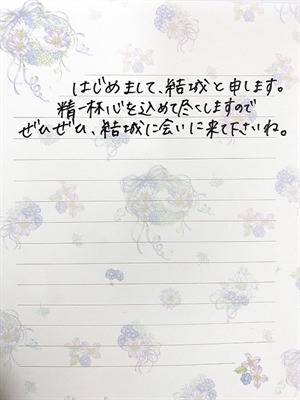 はじめまして、結城と申します。
精一杯心を込めて尽くしますので
ぜひぜひ、結城に会いに来て下さいね。